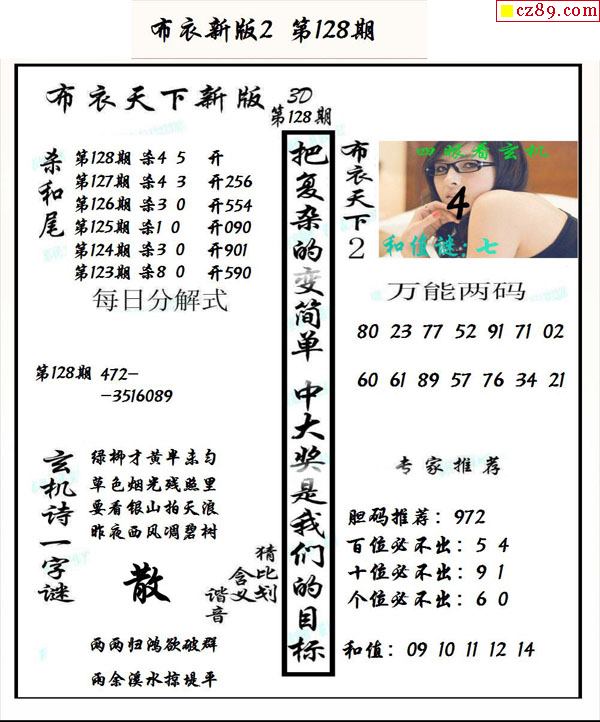 cz89.com
布衣新版2 第128期
布衣天下新版 3D
第128期
杀和尾
第128期 杀4 5 开
第127期 杀4 3 开256
第126期 杀3 0 开554
第125期 杀1 0 开090
第124期 杀3 0 开901
第123期 杀8 0 开590
每日分解式
第128期 472-
-3516089
玄机诗一字谜
绿柳才黄半未匀
草色烟光残照里
要看银山拍天浪
昨夜西风凋碧树
散
猜比划
含义
谐音
两两归鸿欲破群
雨余溪水掠堤平
把复杂的变简单 中大奖是我们的目标
布衣天下2
四眼看玄机
4
和值谜:七
万能两码
80 23 77 52 91 71 02
60 61 89 57 76 34 21
专家推荐
胆码推荐:972
百位必不出:5 4
十位必不出:9 1
个位必不出:6 0
和值:09 10 11 12 14